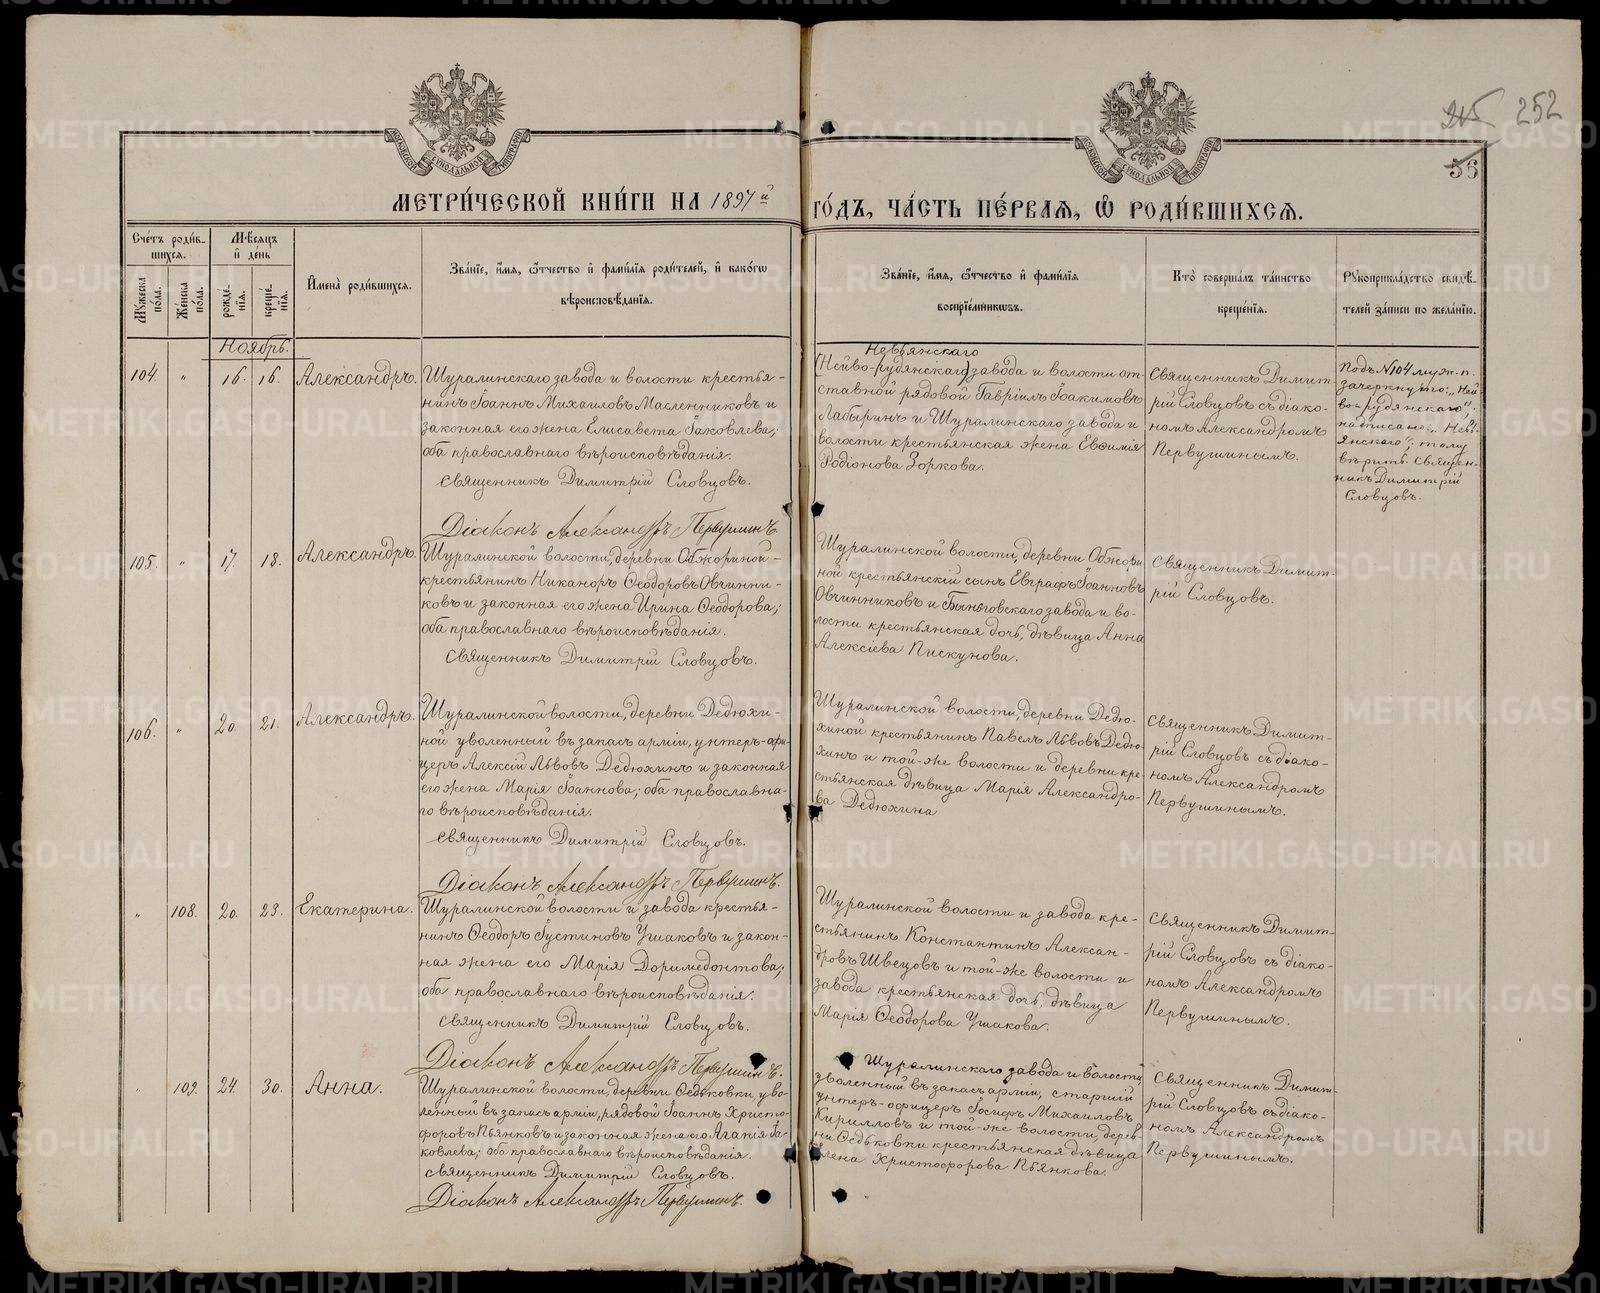 245 252
56
МЕТРИ́ЧЕСКОЙ КНИ́ГИ НА 1897й ГО́ДЪ, ЧА́СТЬ ПЕ́РВАЯ, Ѡ РОДИ́ВШИХСЯ.
Сче́тъ роди́в-
шихся.
Мѣ́сяцъ
и҆ де́нь
Мꙋ́жеска по́ла.
Же́нска по́ла.
рожде́-
нїѧ.
креще́-
нїѧ.
И҆мена̀ роди́вшихся.
Зва́нїе, и҆́мѧ, ѻ҆́тчество и҆ фами́лїѧ роди́телей, и҆ како́гѡ
вѣроисповѣ́данїѧ.
Зва́нїе, и҆́мѧ, ѻ҆́тчество и҆ фами́лїѧ
воспрїе́мникѡвъ.
Кто̀ соверша́лъ та́инство
креще́нїѧ.
Рꙋкоприкла́дство свидѣ́-
телей за́писи по жела́нїю.
Ноябрь.
104. " 16. 16. Александръ.
Шуралинскаго завода и волости крестья-
нинъ Іоаннъ Михаиловъ Масленниковъ и
законная его жена Елисавета Іаковлева;
оба православнаго вѣроисповѣданія.
Священникъ Димитрій Словцовъ.
Діаконъ Александръ Первушинъ.
Невьянскаго
(Нейво-рудянскаго) завода и волости от-
ставной рядовой Гавріилъ Іоакимовъ
Лабыринъ и Шуралинскаго завода и
волости крестьянская жена Евѳимія
Родіонова Зоркова.
Священникъ Димит-
рій Словцовъ съ діако-
номъ Александромъ
Первушинымъ.
Подъ №104 муж. п.
зачеркнуто: „Ней-
во-рудянскаго",
надписано: „Невь-
янскаго"; тому
вѣрить. Священ-
никъ Димитрій
Словцовъ.
105. " 17. 18. Александръ.
Шуралинской волости, деревни Обжориной -
крестьянинъ Никаноръ Ѳеодоровъ Овчинни-
ковъ и законная его жена Ирина Ѳеодорова;
оба православнаго вѣроисповѣданія.
Священникъ Димитрій Словцовъ.
Шуралинской волости, деревни Обжори-
ной крестьянскій сынъ Евграфъ Іоанновъ
Овчинниковъ и Быньговскаго завода и во-
лости крестьянская дочь, дѣвица Анна
Алексіева Пискунова.
Священникъ Димит-
рій Словцовъ.
106. " 20. 21. Александръ.
Шуралинской волости, деревни Дедюхи-
ной уволенный въ запасъ арміи, унтеръ-офи-
церъ Алексій Львовъ Дедюхинъ и законная
его жена Марія Іоаннова; оба православна-
го вѣроисповѣданія.
Священникъ Димитрій Словцовъ.
Діаконъ Александръ Первушинъ.
Шуралинской волости, деревни Дедю-
хиной крестьянинъ Павелъ Львовъ Дедю-
хинъ и той-же волости и деревни кре-
стьянская дѣвица Марія Александро-
ва Дедюхина
Священникъ Димит-
рій Словцовъ съ діако-
номъ Александромъ
Первушинымъ.
" 108. 20. 23. Екатерина.
Шуралинской волости и завода крестья-
нинъ Ѳеодоръ Іустиновъ Ушаковъ и закон-
ная жена его Марія Доримедонтова;
оба православнаго вѣроисповѣданія.
Священникъ Димитрій Словцовъ.
Діаконъ Александръ Первушинъ.
Шуралинской волости и завода кре-
стьянинъ Константинъ Алексан-
дровъ Швецовъ и той-же волости и
завода крестьянская дочь, дѣвица
Марія Ѳеодорова Ушакова.
Священникъ Димит-
рій Словцовъ съ діако-
номъ Александромъ
Первушинымъ.
" 109. 24. 30. Анна.
Шуралинской волости, деревни Ѳедьковки, уво-
ленный въ запасъ арміи, рядовой Іоаннъ Христо-
форовъ Пьянковъ и законная жена его Агапія Іа-
ковлева; оба православнаго вѣроисповѣданія.
Священникъ Димитрій Словцовъ.
Діаконъ Александръ Первушинъ.
Шуралинскаго завода и волости
уволенный въ запасъ арміи, старшій
унтеръ-офицеръ Іосифъ Михаиловъ
Кирилловъ и той-же волости, дерев-
ни Ѳедьковки крестьянская дѣвица
Елена Христофорова Пьянкова.
Священникъ Димит-
рій Словцовъ съ діако-
номъ Александромъ
Первушинымъ.
METRIKI.GASO-URAL.RU